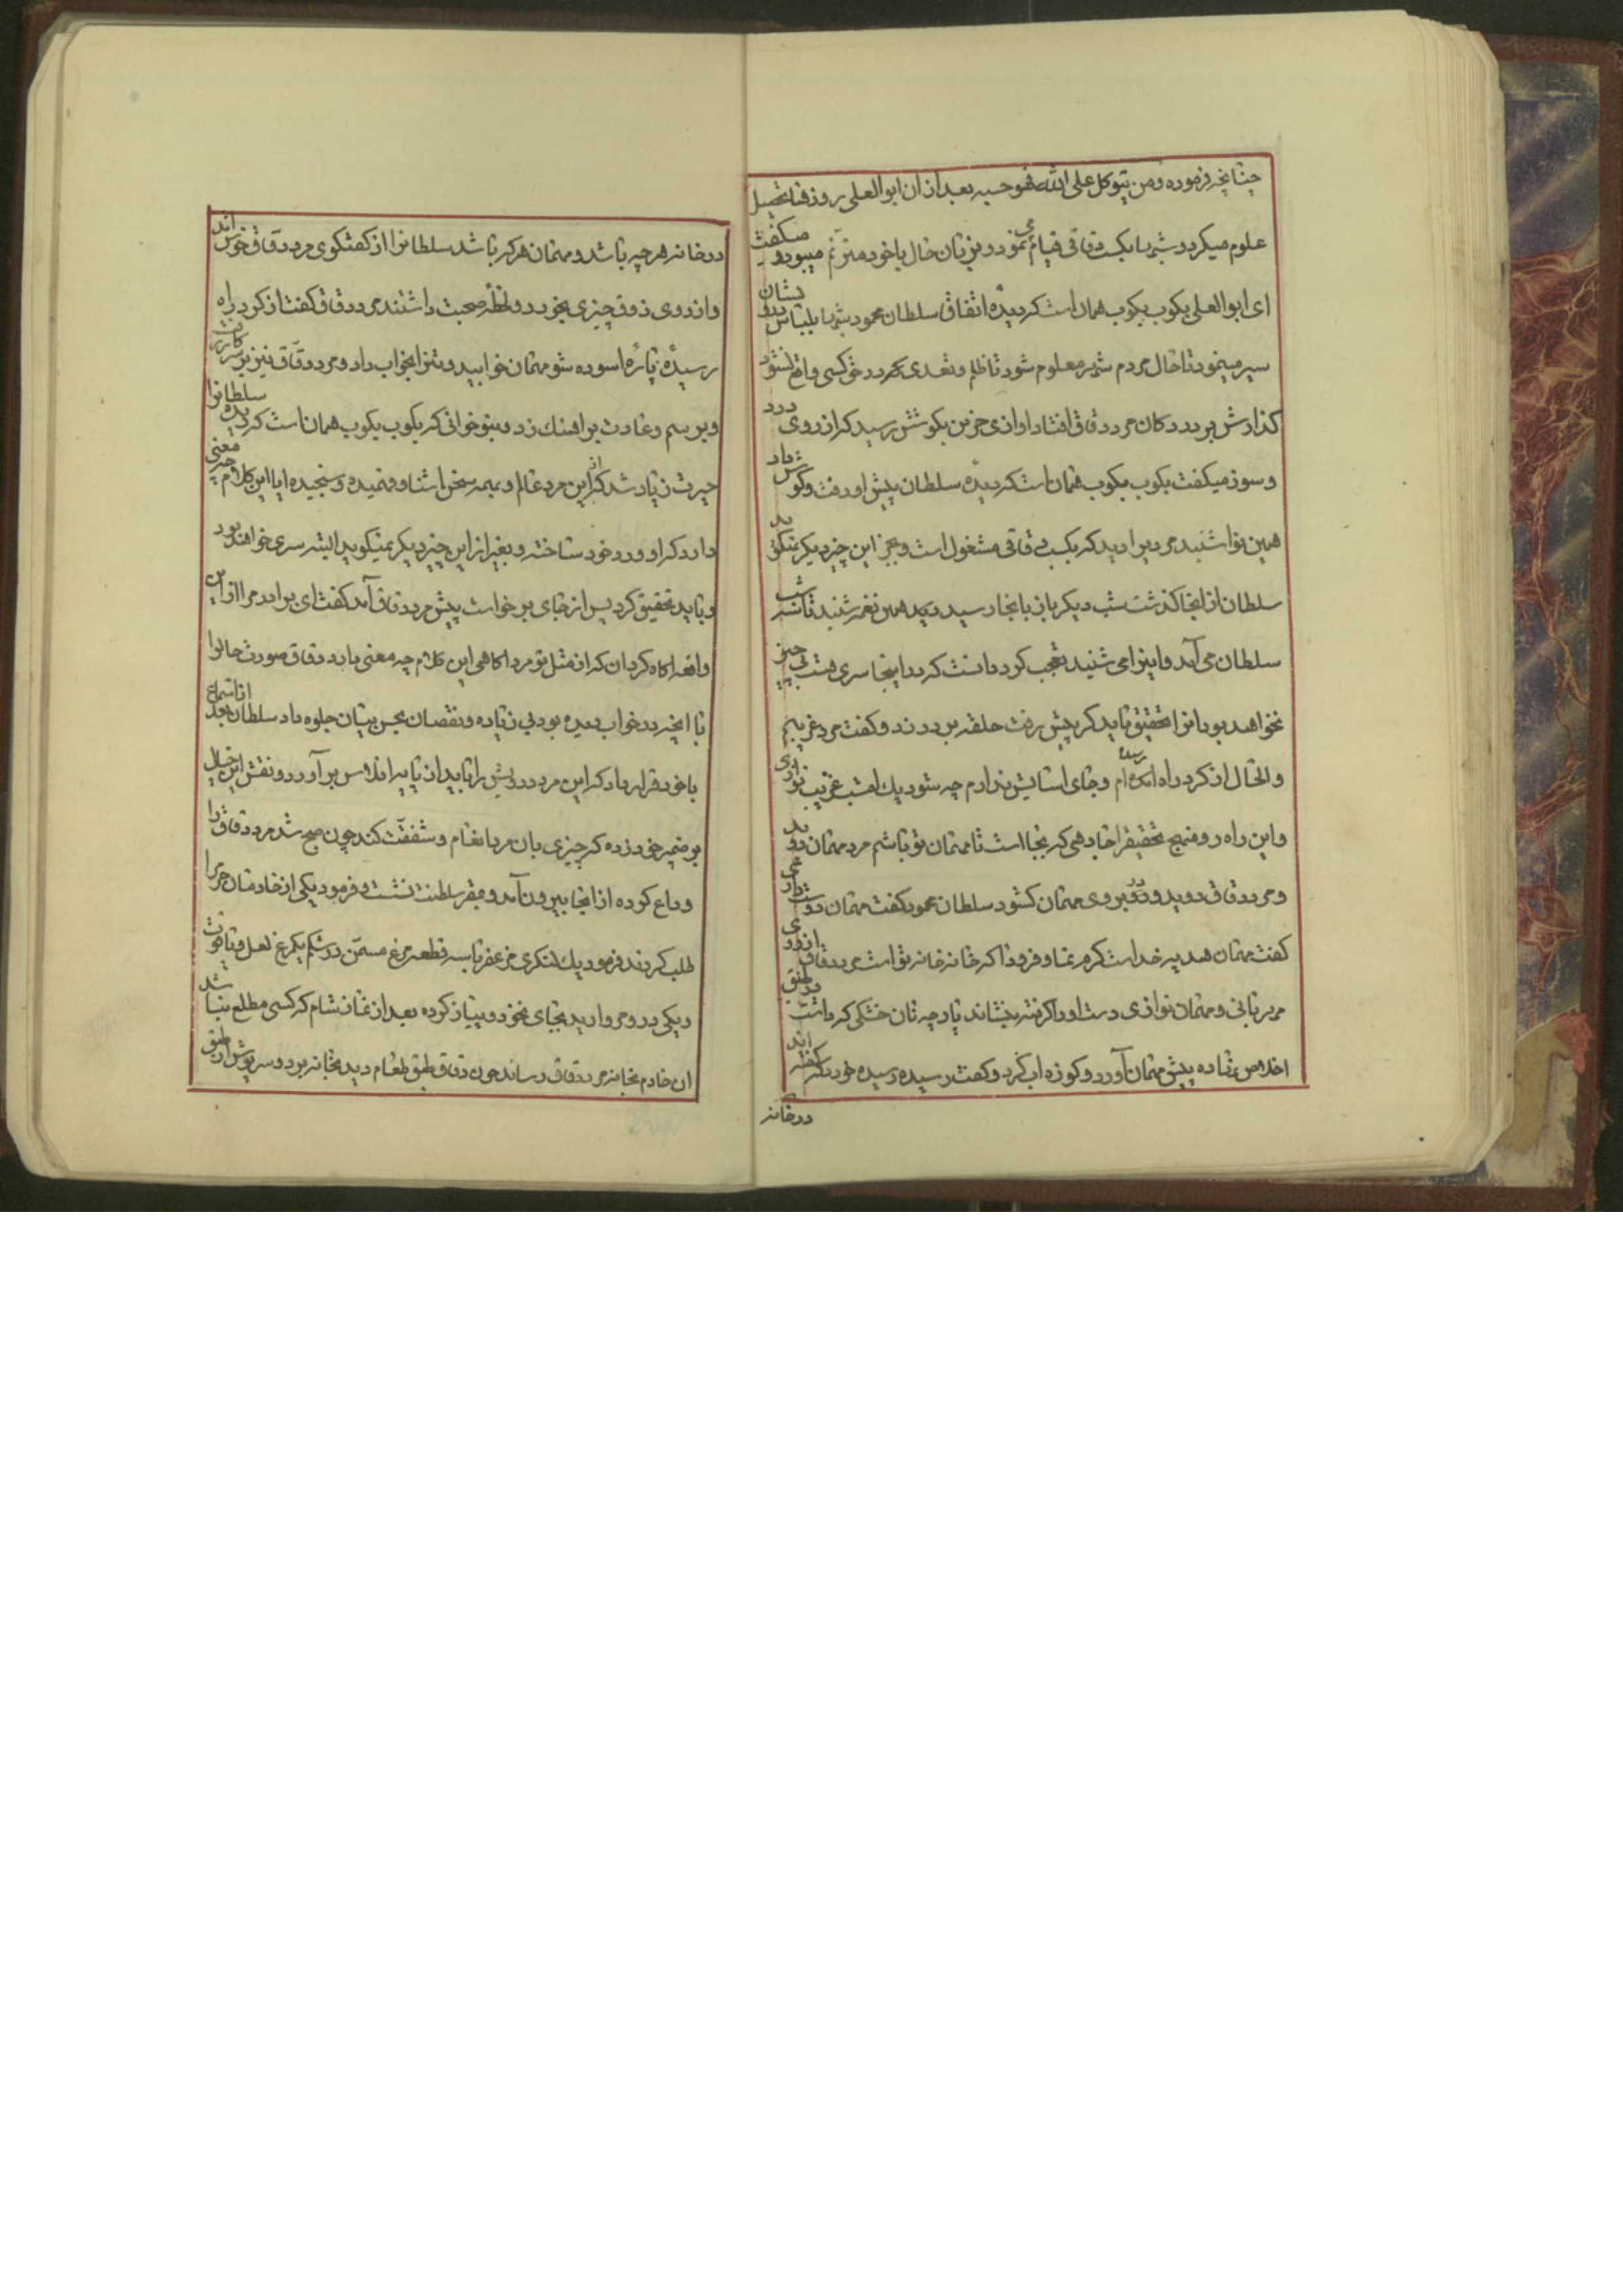 چنانچه فرموده ومن یتوکل علی الله فهو حسبه بعد از ان ابوالعلی روزها تحصیل
علوم میکرد و شبها بکسب دقاقی قیام می نمود و بزبان حال با خود مترنم میبود و میکفت
ای ابوالعلی بکوب بکوب همان است که دیدهٔ اتفاقا سلطان محمود شبها بلباس درویشان
سیر مینمود تا حال مردم شهر معلوم شود تا ظلم و تعدی در حق کسی واقع نشود
کذارش بر در دکان مرد دقاق افتاد اوازی حزین بکوشش رسید که از روی درد
و سوز میکفت بکوب بکوب همان است که دیدهٔ سلطان پیش او رفت و کوش داد
همین نوا شنید مرد پیرا دید که بکسب دقاقی مشغول است و بجز این چیز دیکر نمیکوید
سلطان از اینجا کذشت شب دیکر باز بانجا رسید دید همین نغمه شنید تا سه شب
سلطان می آمد و اینرا می شنید تعجب کرد دانست که در اینجا سری هست بی چیزی
نخواهد بود انرا تحقیق باید کرد پیش رفت حلقه بر در زد و کفت مرد غریبم
والحال از کرد راه رسیده ام و جای اسایش ندارم چه شود یک امشب غریب نوازی
و این راه رو منهج تحقیقرا جا دهی که بجا است تا مهمان تو باشم مرد مهمان دوید
و مرد دقاق دوید و در بروی مهمان کشود سلطان محمود کفت مهمان دوست میداری
کفت مهمان هدیه خداست کرم نما و فرود ا که خانه خانه تو است مرد دقاق از روی
مهربانی و مهمان نوازی دست او را کرفته بنشاند پارچه نان خشکی که داشت در طبق
اخلاص نهاده پیش مهمان آورد و کوزه اب کرد و کفت رسیده رسیده خورد که کفته اند
در خانه
در خانه هر چه باشد و مهمان هر که باشد سلطانرا از کفتکوی مرد دقاق خوش اند
و از روی ذوق چیزی بخورد و لحظهٔ صحبت داشتند مرد دقاق کفت از کرد راه
رسیدهٔ پارهٔ اسوده شو مهمان خوابید و تنرا بخواب داد و مرد دقاق نیز بر سر کار رفت
و برسم و عادت بر اهنک زد و بنوخوانی که بکوب بکوب همان است که دیده سلطانرا
حیرت زیاد شد که این مرد از عالم و بهمه سخن اشنا و فهمیده و سنجیده ایا این کلام چه معنی
دارد که او ورد خود ساخته و بغیر از این چیز دیکر نمیکوید البته سری خواهد بود
و باید تحقیق کرد پس از جای برخواست پیش مرد دقاق آمد کفت ای برادر مرا از این
واقعه اکاه کردان که از مثل تو مرد اکاهی این کلام چه معنی دارد دقاق صورت حالرا
با انچه در خواب دیده بود بی زیاده و نقصان بحسن بیان جلوه داد سلطان بعد از استماع
با خود قرار داد که این مرد درویش را باید از پایه افلاس بر آورد و نقش این خیال
بر ضمیر خود زده که چیزی بان مرد انعام و شفقت کند چون صبح شد مرد دقاق را
وداع کرده از انجا بیرون آمد و بمقر سلطنت نشست و فرمود یکی از خادمان حرم را
طلب کردند فرمود یک لنکری مزعفر با سه قطعه مرغ مسمن در شکم یک مرغ لعل و یاقوت
و یکی در و مروارید بجای نخود و پیاز کرده بعد از نماز شام که کسی مطلع نباشد
ان خادم بخانه مرد دقاق رساند چون دقاق طبق طعام دید بخانه برد و سرپوش از طبق